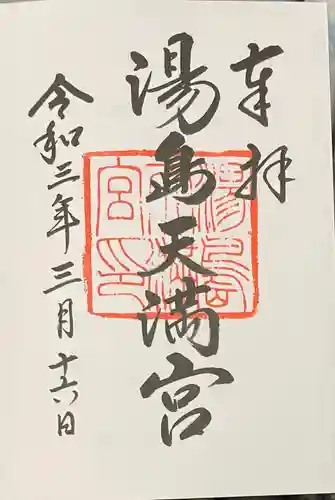 奉拝
湯島天満宮
令和三年三月十六日